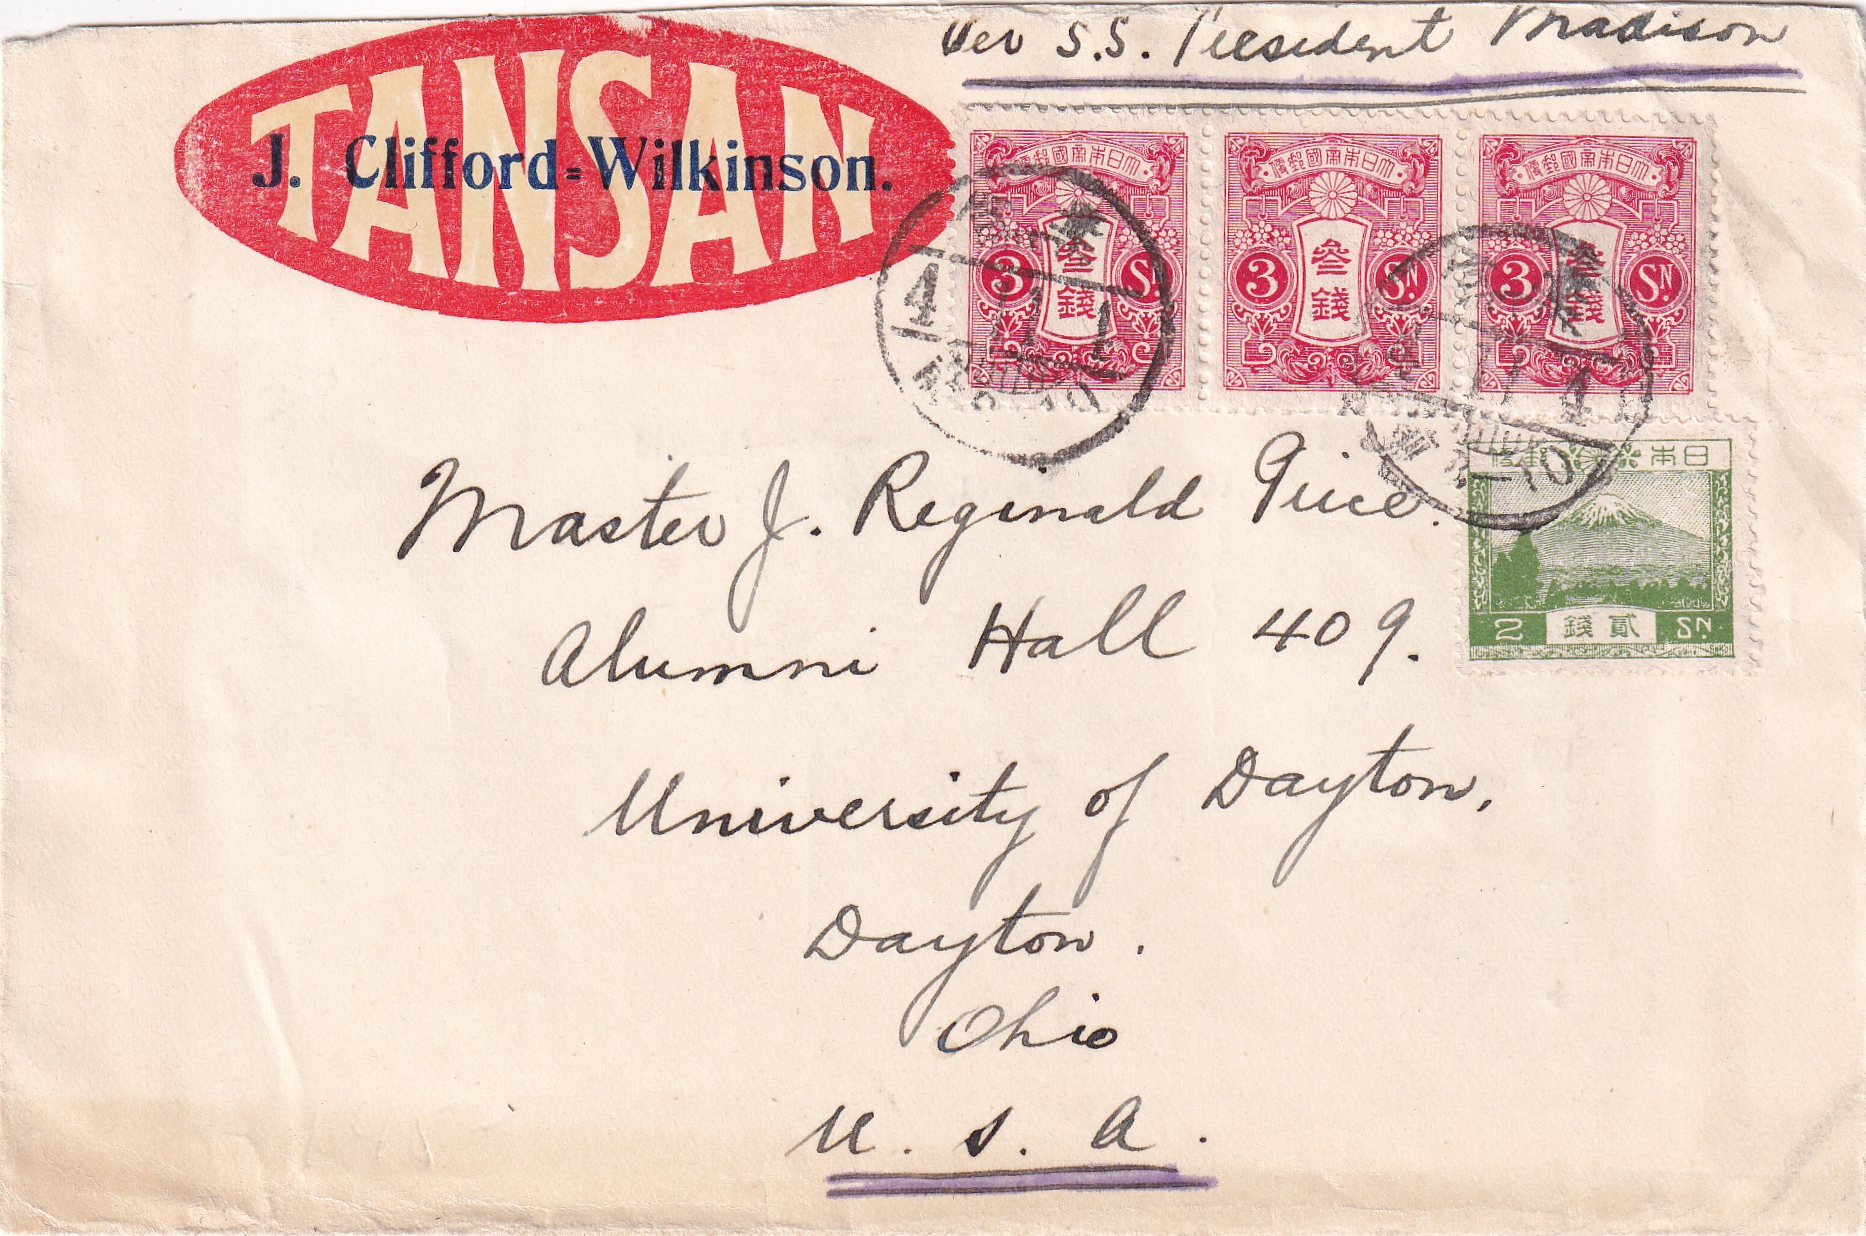 Per S.S. President Madison
TANSAN
J. Clifford=Wilkinson.
大日本帝國郵便
3 叁錢 SN.
大日本帝國郵便
3 叁錢 SN.
大日本帝國郵便
3 叁錢 SN.
4
日本
2 貳錢 SN.
Master J. Reginald Price.
Alumni Hall 409.
University of Dayton,
Dayton.
Ohio
U. S. A.